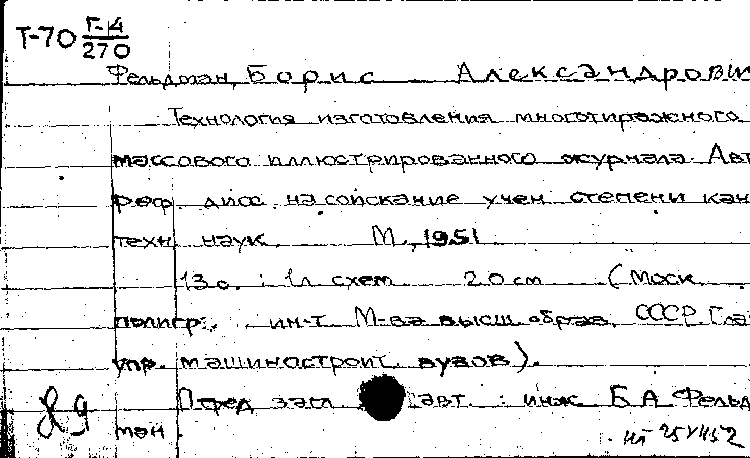 Т-70 Г-4
270
Фельдман, Борис Александрович
Технология изготовления многотиражного
массового иллюстрированного журнала. Авт
реф. дисс. на соискание учен. степени кан
техн. наук. М., 1951
13 с. ; 1 л схем 20 см (Моск.
полигр. ин-т М-ва высш. образ. СССР. Гла
упр. машиностроит. вузов).
Перед загл. авт. : инж. Б. А. Фельд
ман.
89